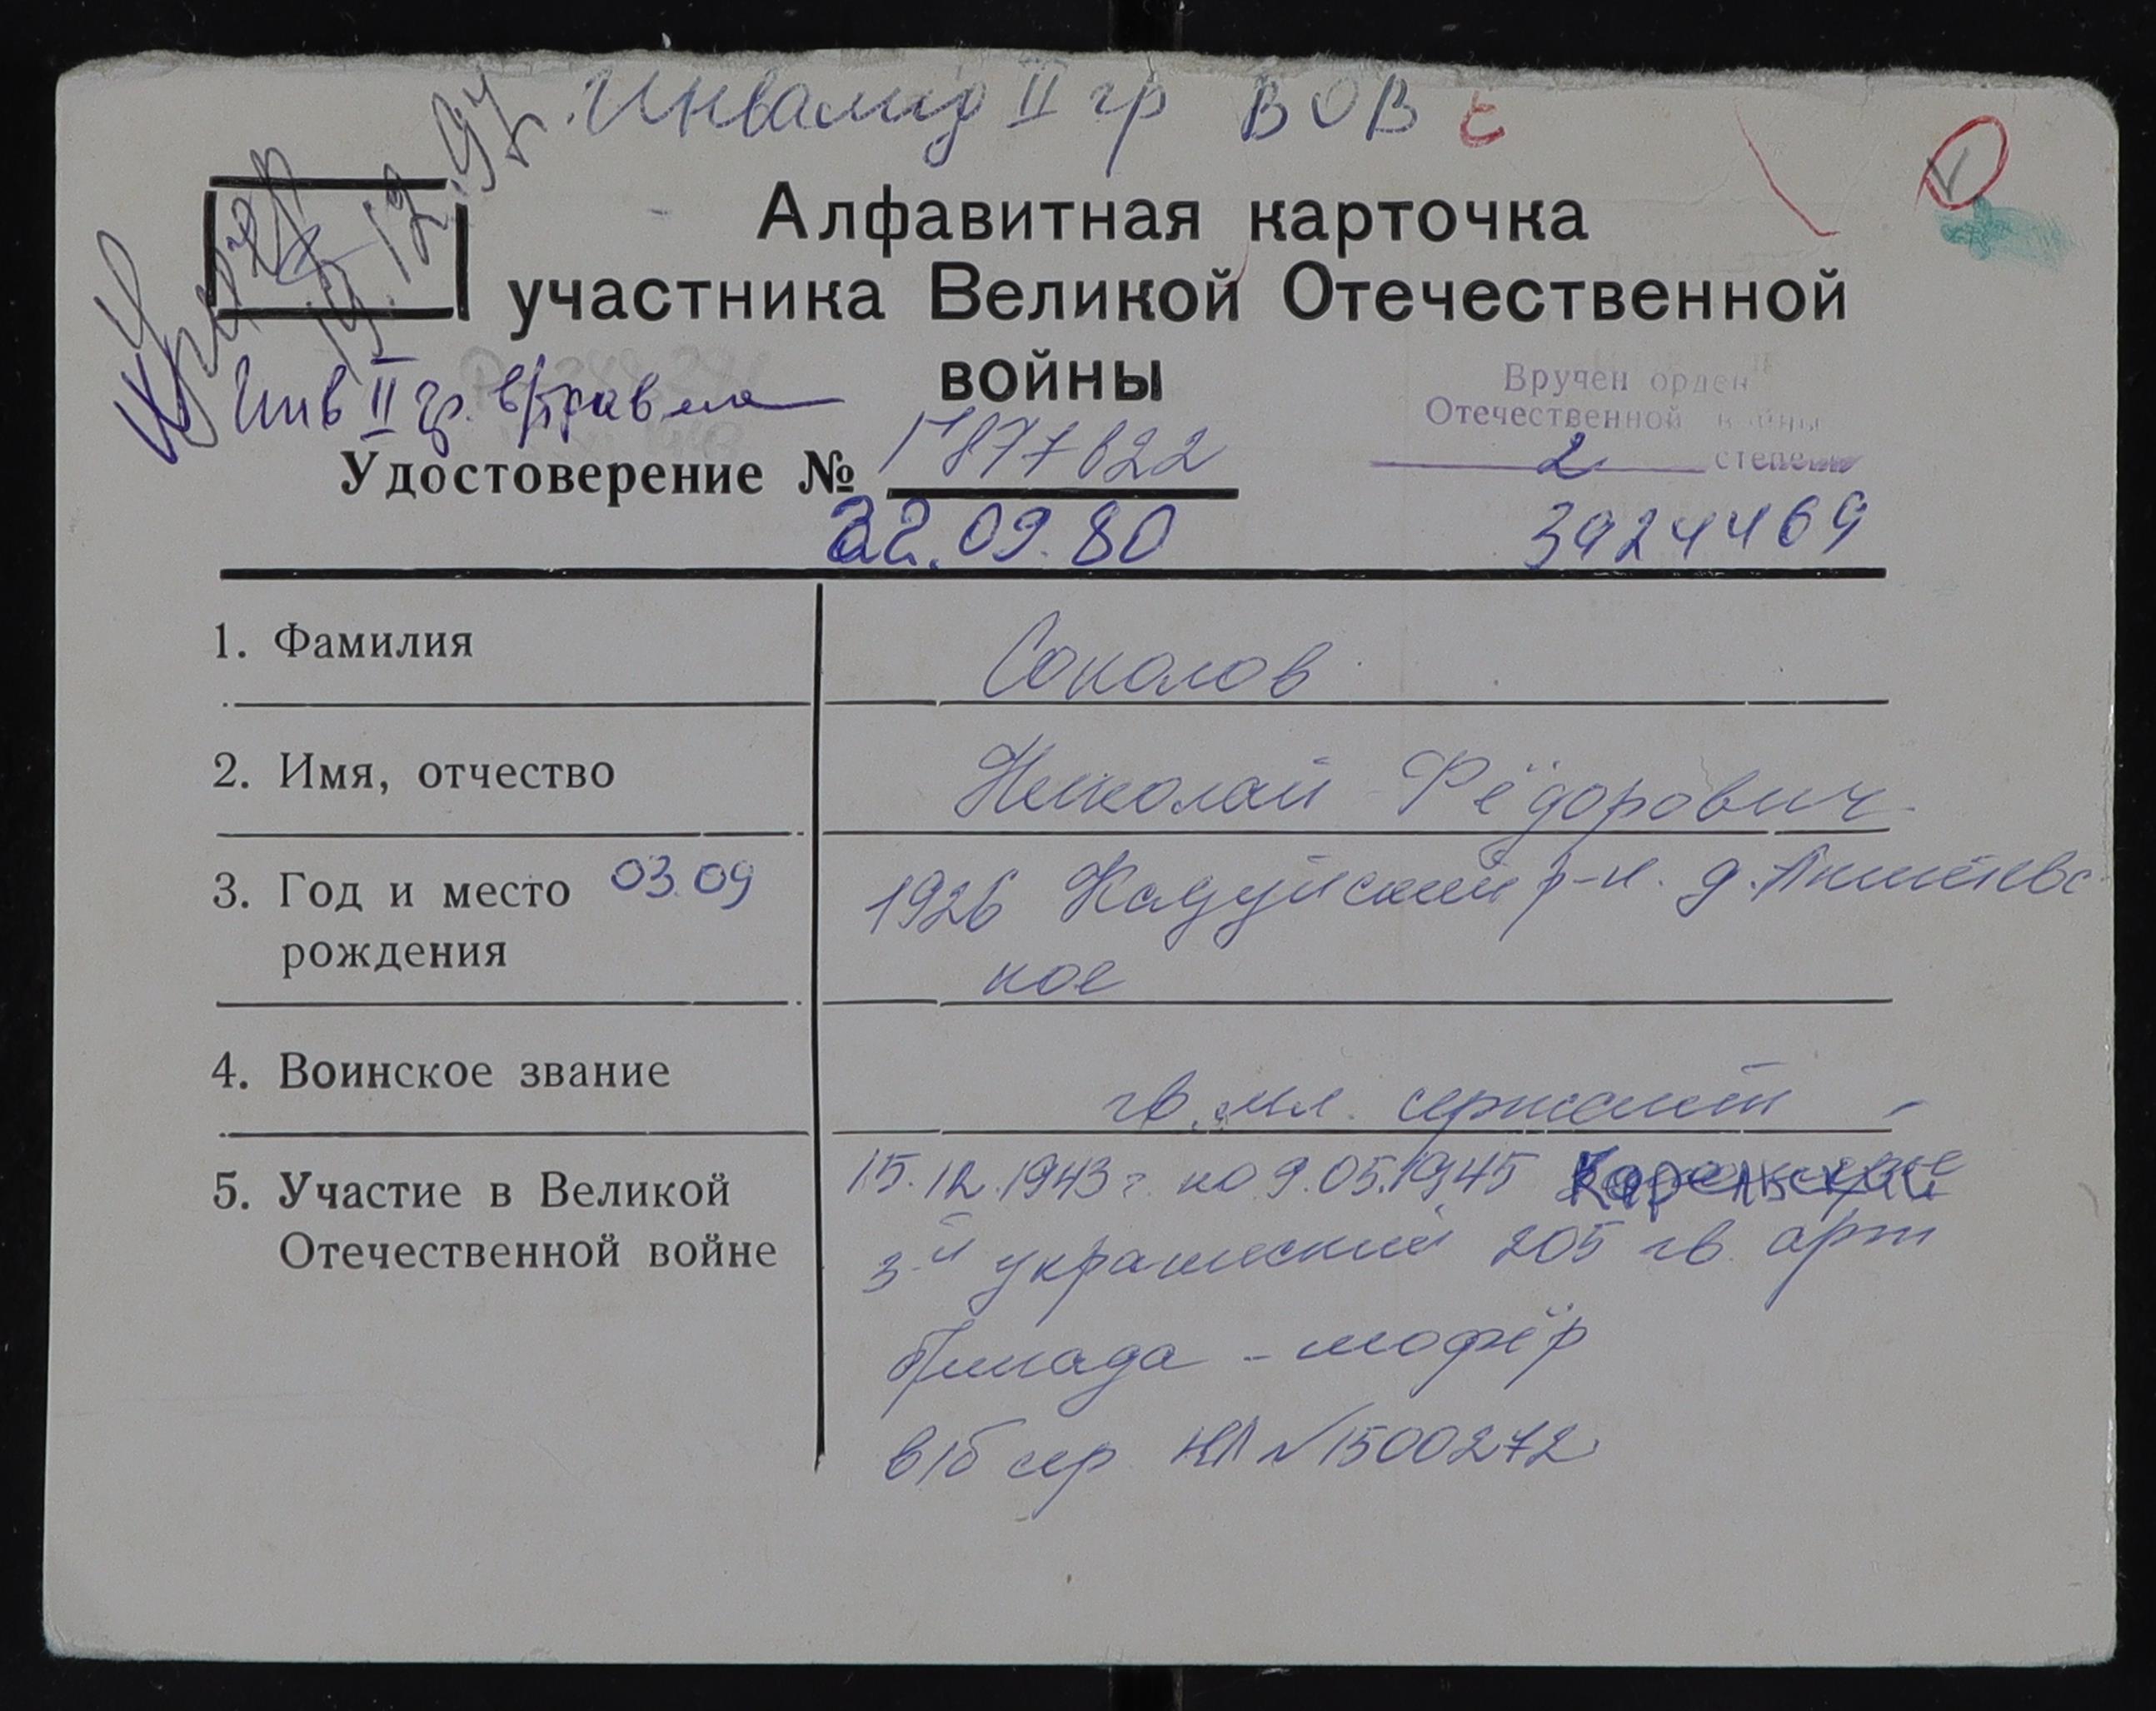 Инвалид II гр ВОВ с
Умер
19.12.97г.
Алфавитная карточка
участника Великой Отечественной
войны
Инв II гр. в/травма
Вручен орден
Отечественной войны
2 степени
Удостоверение № 877622
22.09.80
3924469
1. Фамилия Соколов
2. Имя, отчество Николай Фёдорович
3. Год и место 03.09 1926 Кадуйский р-н. д.
рождения кое
4. Воинское звание гв. мл. сержант
5. Участие в Великой 15.12.1943 г. по 9.05.1945 Карельский
Отечественной войне 3-й украинский 205 гв. арт
бригада - шофёр
в/б сер НЛ №1500272